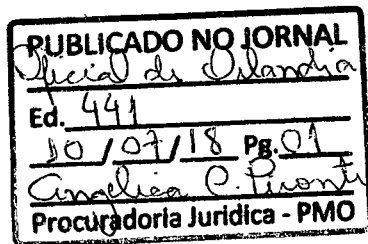 PUBLICADO NO JORNAL
Oficial de Orlandia
Ed. 441
10 / 07 / 18 Pg. 01
Angelica C.
Procuradoria Juridica - PMO